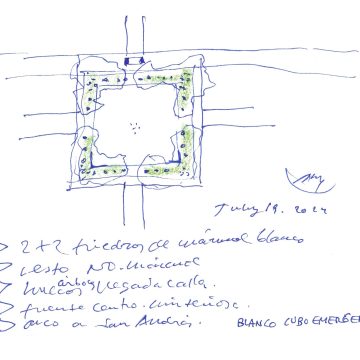 July 19. 2024
2+2 triedros de mármol blanco
resto NO-mármol
árbol
huecos llegada calle.
fuente centro.
arco a San Andrés.
BLANCO CUBO EMERGE